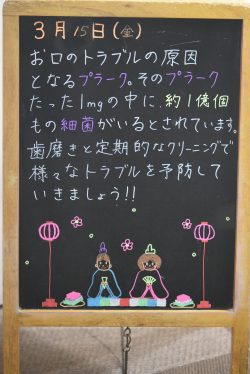 3月15日(金)
お口のトラブルの原因
となるプラーク。そのプラーク
たった1mgの中に、約1億個
もの細菌がいるとされています。
歯磨きと定期的なクリーニングで
様々なトラブルを予防して
いきましょう!!